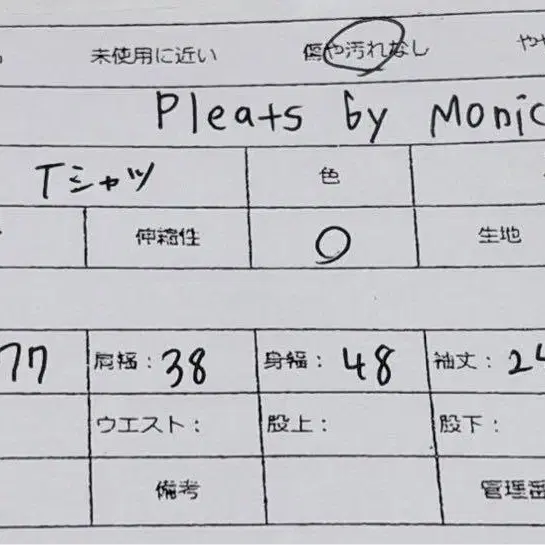 未使用に近い 傷や汚れなし やや
Pleats by Monic
Tシャツ 色
伸縮性 ○ 生地
77 肩幅：38 身幅：48 袖丈：24
ウエスト： 股上： 股下：
備考 管理番